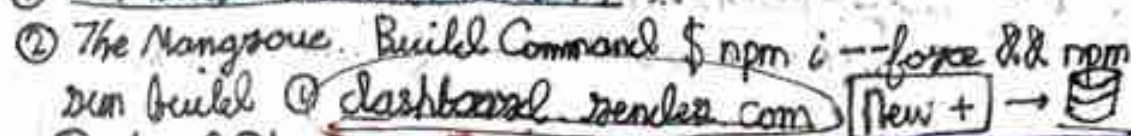 ② The Mangrove. Build Command $ npm i --force && npm
run build ④ dashboard render com New + →